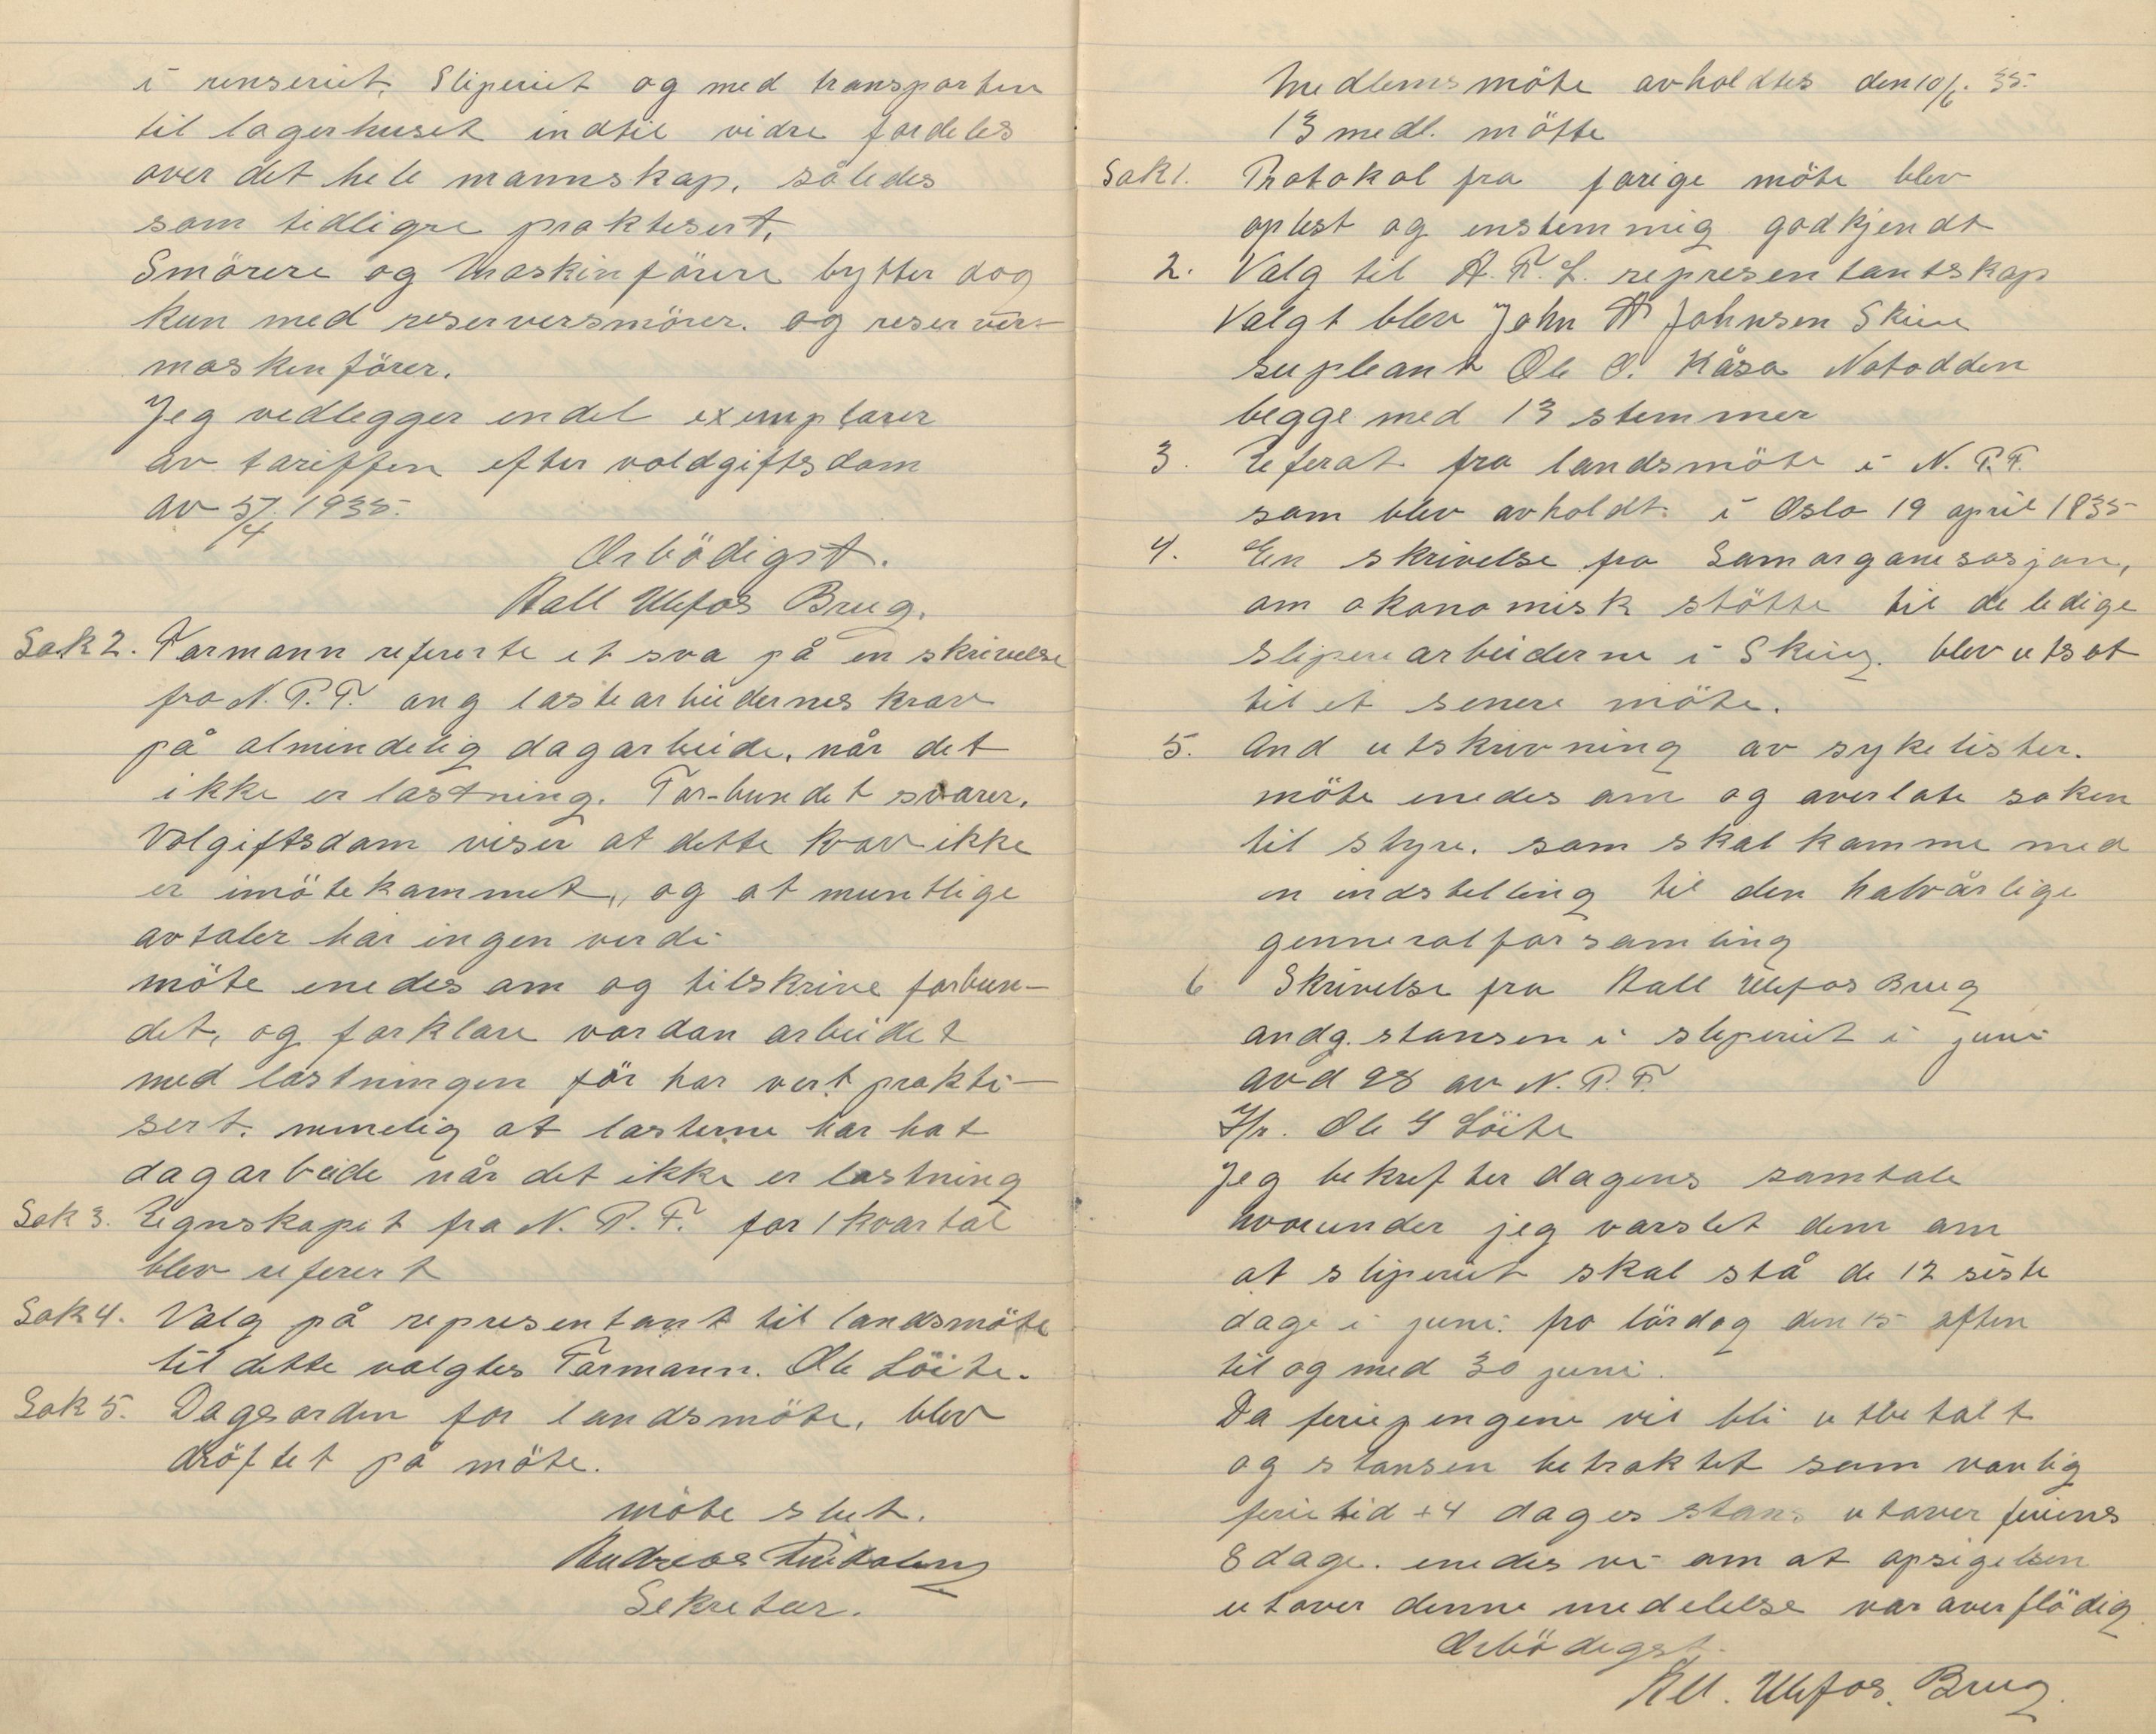 i renseriet, Sliperiet og med transporten
til lagerhuset indtil vidre fordeles
over det hele mannskap, således
som tidligre praktesert,
Smörere og Maskinförere bytter dog
kun med reserversmörer. og reserver-
maskinförer.
Jeg vedlegger endel exemplarer
av tariffen efter voldgiftsdom
av 5/4 1935.
Ærbödigst.
Aall Ulefos Brug.
Sak 2. Formann refererte et sva på en skrivelse
fra N. P. F. ang lastearbeidernes krav
på almindelig dagarbeide, når det
ikke er lastning. For-bundet svarer.
Volgiftsdom viser at dette krav ikke
er imötekommet, og at muntlige
avtaler har ingen verdi
möte enedes om og tilskrive forbun-
det, og forklare vordan arbeidet
med lastningen för har vert prakti-
sert. nemelig at lasterne har hat
dagarbeide når det ikke er lastning
Sak 3. Regnskapet fra N. P. F. for 1 kvartal
blev referert
Sak 4. Valg på representant til landsmöte
til dette valgtes Formann. Ole Löite.
Sak 5. Dagsorden for landsmöte, blev
dröftet på möte.
möte slut.
Andreas
Sekretær.
Medlemsmöte avholdtes den 10/6. 35.
13 medl. mötte
Sak 1. Protokol fra forige möte blev
oplest og enstemmig godkjendt
2. Valg til A. F. L. representantskap
Valgt blev John A Johnsen Skien
supleant Ole O. Kåsa Notodden
begge med 13 stemmer
3. Referat fra landsmöte i N. P. F.
som blev avholdt i Oslo 19 april 1835
4. En skrivelse fra Samorganesasjon,
om økonomisk stötte til de ledige
sliperiarbeiderne i Skien. blev utsat
til et senere möte.
5. And utskrivning av sykelister.
möte enedes om og overlate saken
til styre. som skal komme med
en indstelling til den halvårlige
genneralforsamling
6 Skrivelse fra Aall Ulefos Brug
andg. stansen i sliperiet i juni
avd 28 av N. P. F.
H/r. Ole G Löite
Jeg bekrefter dagens samtale
hvorunder jeg varslet dem om
at sliperiet skal stå de 12 siste
dage i juni. fra lördag den 15 aften
til og med 30 juni.
Da feriepengene vil bli utbetalt
og stansen betraktet som vanlig
ferietid +4 dages stans utover feriens
8 dage. enedes vi om at opsigelsen
utover denne medelelse var overflödig
Ærbödigst.
All. Ulefos. Brug.